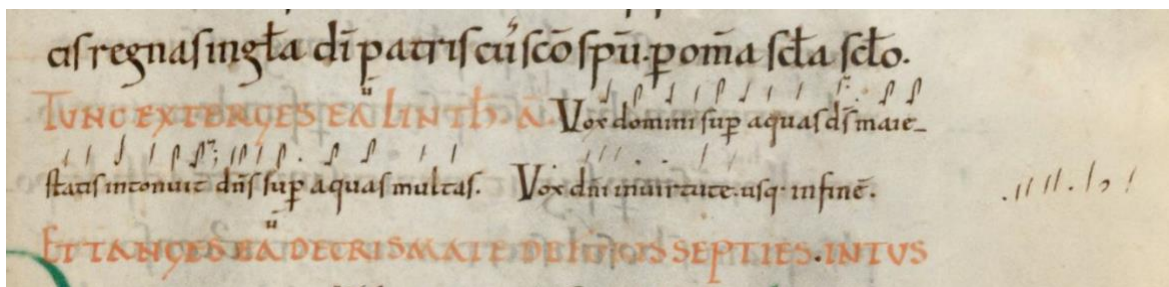 cis regna singl̄a dī patris cū scō spū. p̄ om̄a scl̄a scl̄o.
TUNC EXTERGES EĀ LINTH. Ā. Vox domini sup̄ aquas ds̄ maie-
statis intonuit dn̄s sup̄ aquas multas. Vox dn̄i in uirtute. usq· in finē.
ET TANGES EĀ DE CRISMATE DE SEPTIES. INTUS